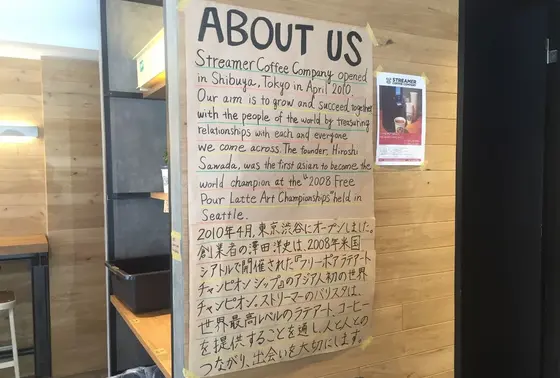 ABOUT US
Streamer Coffee Company opened
in Shibuya, Tokyo in April 2010.
Our aim is to grow and succeed together
with the people of the world by treasuring
relationships with each and everyone
we come across. The founder, Hiroshi
Sawada, was the first asian to become the
world champion at the "2008 Free
Pour Latte Art Championships" held in
Seattle.
2010年4月,東京渋谷にオープンしました。
創業者の澤田洋史は、2008年米国
シアトルで開催された『フリーポアラテアート
チャンピオンシップ』のアジア人初の世界
チャンピオン。ストリーマーのバリスタは、
世界最高レベルのラテアート、コーヒー
を提供することを通し、人と人との
つながり、出会いを大切にします。
STREAMER